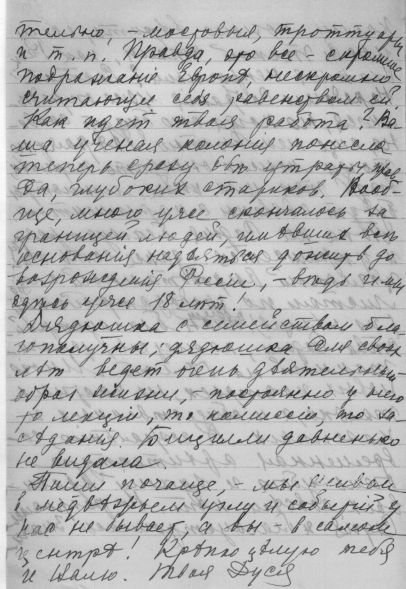 тельно, - мостовыя, троттуары
и т. п. Правда, это все - скромное
подражанiе Европѣ, нескромно
считающим себя равенством ей.
Как идет твоя работа? Ва-
ша ученая колонiя понесла
теперь сразу 2 утраты, прав-
да, глубоких стариков. Вооб-
ще, много уже скончалось за
границей людей, имѣвших всѣ
основанiя надѣяться дожить до
возрожденiя Россiи, - вѣдь
уже 18 лѣт!
Дядюшка с семейством бла-
гополучны; дядюшка для своих
лѣт ведет очень дѣятельный
образ жизни, постоянно у него
то лекцiи, то комиссiи, то за-
сѣданiя. давненько
не видала.
Пиши почаще, - мы живем
в медвѣжьем углу и событiй у
нас не бывает, а вы - в самом
центрѣ! Крѣпко цѣлую тебя
и Твоя Дуся